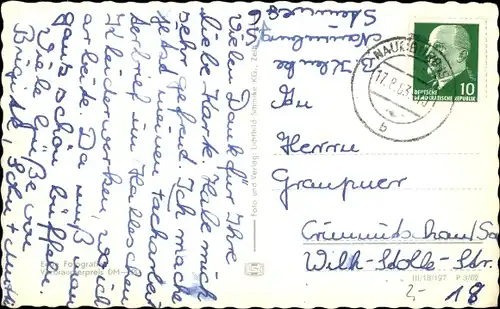 Vielen Dank für Ihre
liebe Karte. Habe mich
sehr gefreut. Ich mache
jetzt meinen Facharbei-
terbrief im Halleschen
Kleiderwerken, wo ich
arbeite. Da muß man
ganz schön büffeln.
Viele Grüße von
Brigitte,
Foto und Verlag Lichtbild
Echt Fotografie
Verbraucherpreis DM
Naumburg
Steinweg
NAUMBURG
17.8.63
b
DEUTSCHE
DEMOKRATISCHE REPUBLIK
10
Herrn
Graupner
Crimmitschau/Sa
Wilh-Stolle-Str.
18
III/18/197 P 3/62
2,-